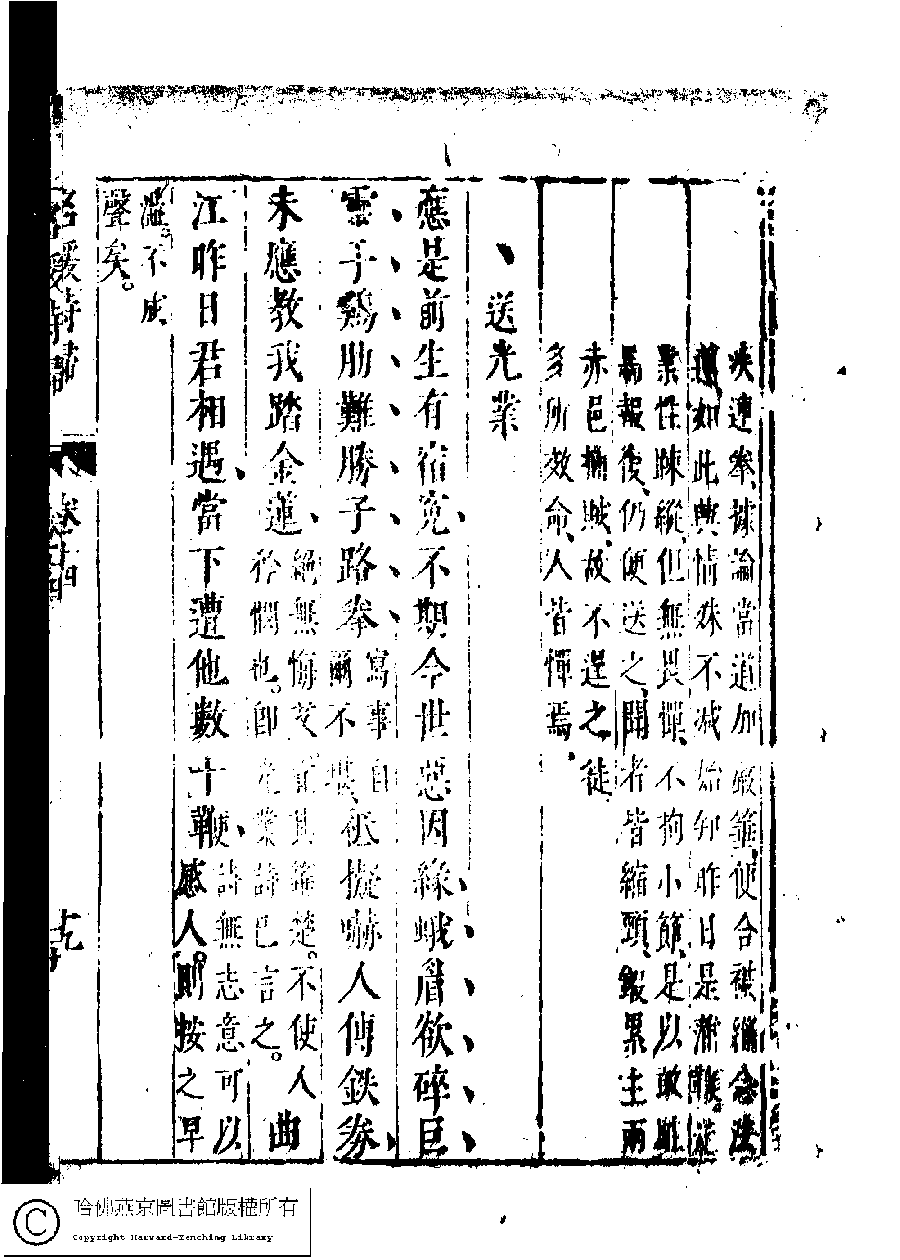 疾連牽據論當道加嚴箠便合襆緇念法
蓮如此興情殊不減始知昨日是漸鞭從
業性踈縱但無畏憚不拘小節是以敢
馬報復仍便送之聞者皆縮頸鍛累主兩
赤邑擒賊故不逞之徒
多所效命人皆憚焉
送光業
應是前生有宿寃不期今世惡因緣蛾眉欲碎巨
靈手鷄肋難勝子路拳
寫事自
爾不堪
祗擬嚇人傳鉄券
未應教我踏金蓮
絕無悔艾記其箠楚不使人
矜憫也即光業詩巳言之
曲
江昨日君相遇當下遭他數十鞭
使詩無志意可以
感人則按之早
澁不成
聲矣
名媛詩歸
卷十四
十九
哈佛燕京圖書館版權所有
Copyright Harvard-Yenching Library